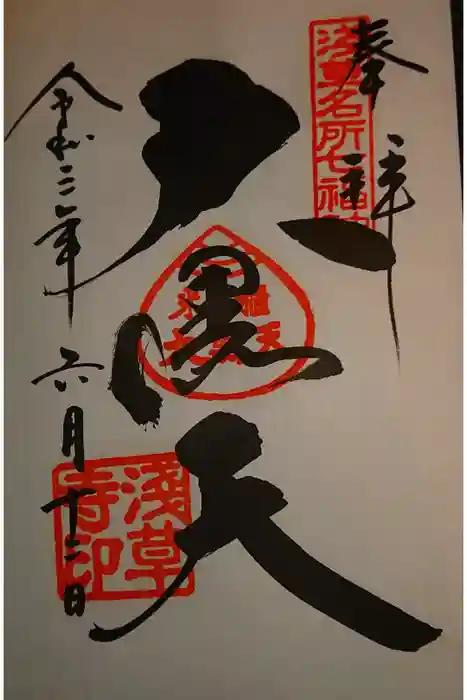 奉拝
浅草名所七福神
大黒天
令和三年六月十二日
淺草寺印